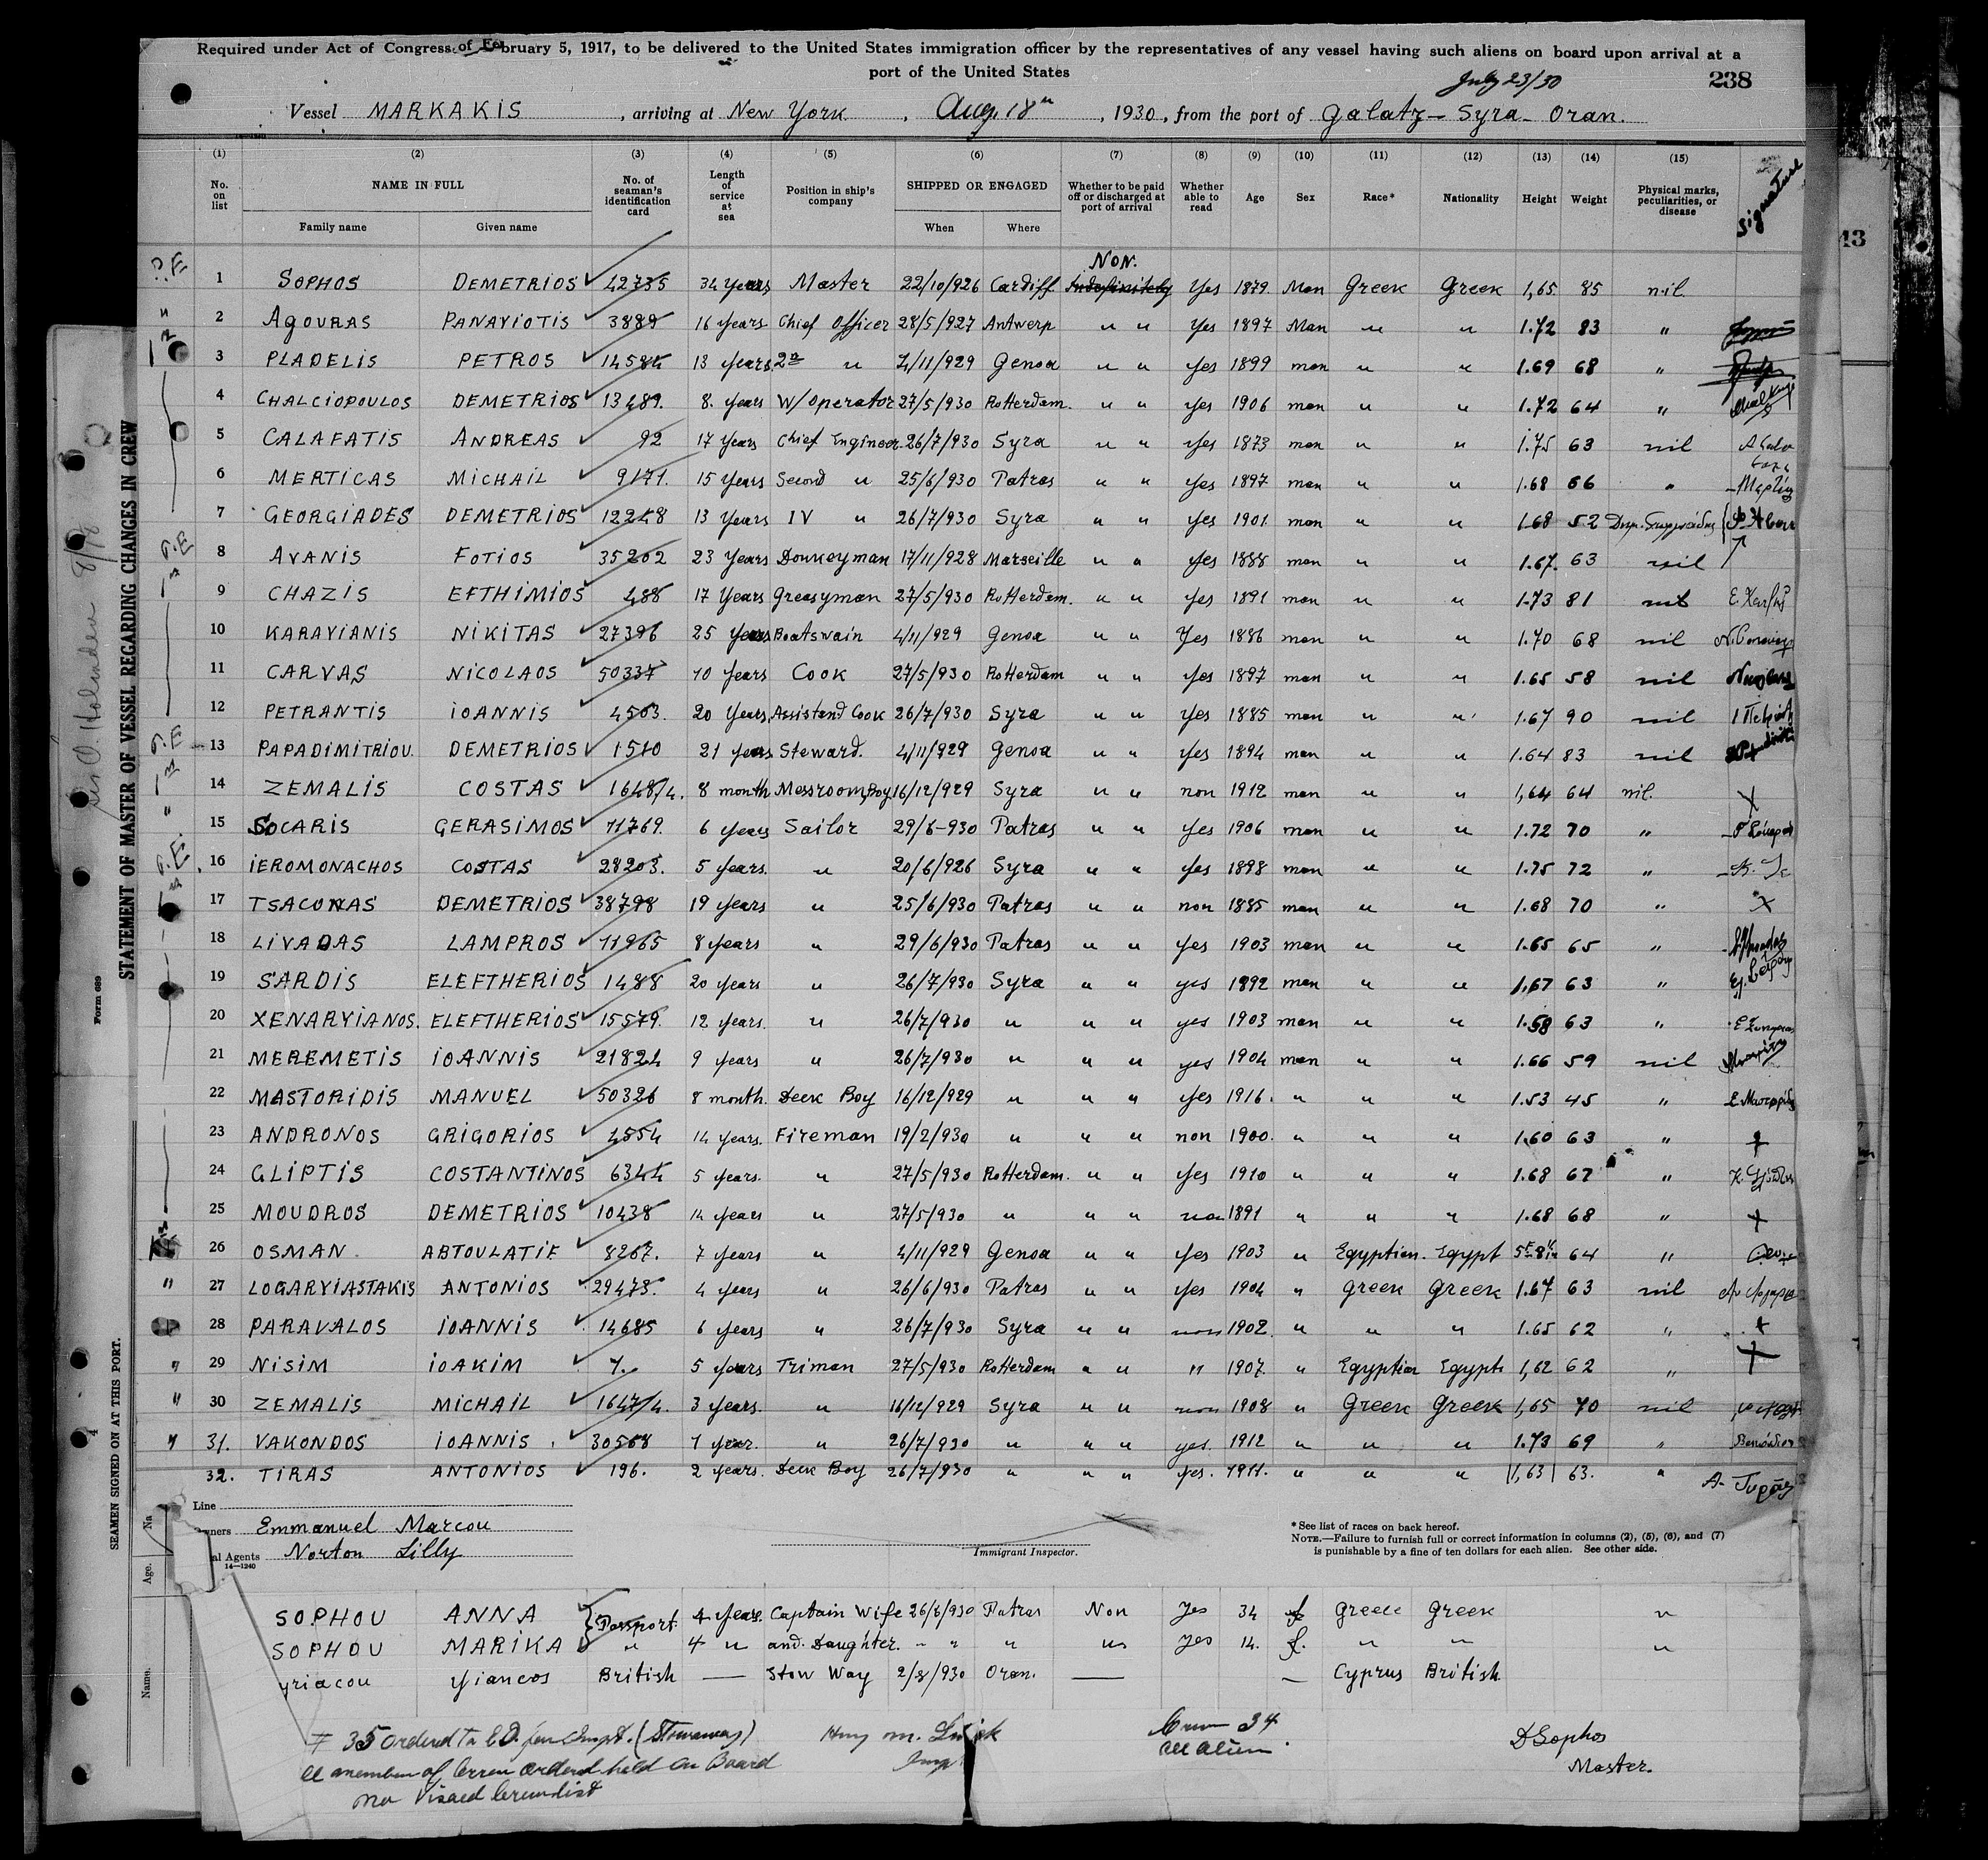 Required under Act of Congress of February 5, 1917, to be delivered to the United States immigration officer by the representatives of any vessel having such aliens on board upon arrival at a
port of the United States
July 23/30
238
Vessel MARKAKIS , arriving at New York , Aug. 18th , 1930, from the port of Galatz - Syra - Oran.
(1) (2) (3) (4) (5) (6) (7) (8) (9) (10) (11) (12) (13) (14) (15)
No. on list NAME IN FULL Family name Given name No. of seaman's identification card Length of service at sea Position in ship's company SHIPPED OR ENGAGED When Where Whether to be paid off or discharged at port of arrival Whether able to read Age Sex Race* Nationality Height Weight Physical marks, peculiarities, or disease Signature
NON.
1 SOPHOS DEMETRIOS 42735 34 Years Master 22/10/926 Cardiff Indefinitely Yes 1879 Man Greek Greek 1,65 85 nil.
2 AGOURAS PANAYIOTIS 3889 16 years Chief Officer 28/5/927 Antwerp " " Yes 1897 Man " " 1.72 83 "
3 PLADELIS PETROS 14584 13 years 2nd " 4/11/929 Genoa " " yes 1899 man " " 1.69 68 "
4 CHALCIOPOULOS DEMETRIOS 13489. 8. years W/operator 27/5/930 Rotterdam. " " yes 1906 man " " 1.72 64 "
5 CALAFATIS ANDREAS 92 17 Years Chief Engineer 26/7/930 Syra " " yes 1873 man " " 1.75 63 nil
6 MERTICAS MICHAIL 9171. 15 Years Second " 25/6/930 Patras " " yes 1897 man " " 1.68 66 "
7 GEORGIADES DEMETRIOS 12248 13 Years IV " 26/7/930 Syra " " yes 1901 man " " 1.68 52
8 AVANIS FOTIOS 35202 23 Years Donkeyman 17/11/928 Marseille " " yes 1888 man " " 1.67. 63 nil
9 CHAZIS EFTHIMIOS 488 17 Years Greasyman 27/5/930 Rotterdam. " " yes 1891 man " " 1.73 81 nil
10 KARAYIANIS NIKITAS 27396 25 Years Boatswain 4/11/929 Genoa " " Yes 1886 man " " 1.70 68 nil
11 CARVAS NICOLAOS 50337 10 Years Cook 27/5/930 Rotterdam " " yes 1897 man " " 1.65 58 nil
12 PETRANTIS IOANNIS 4503. 20 Years Assistand Cook 26/7/930 Syra " " Yes 1885 man " " 1.67 90 nil
13 PAPADIMITRIOU. DEMETRIOS 1510 21 years Steward. 4/11/929 Genoa " " Yes 1894 man " " 1.64 83 nil
14 ZEMALIS COSTAS 1648/4. 8 month Messroom Boy 16/12/929 Syra " " non 1912 man " " 1,64 64 nil. X
15 SOCARIS GERASIMOS 11769. 6 years Sailor 29/6-930 Patras " " Yes 1906 man " " 1.72 70 "
16 IEROMONACHOS COSTAS 28203. 5 years. " 20/6/926 Syra " " yes 1898 man " " 1.75 72 "
17 TSACONAS DEMETRIOS 38798 19 years " 25/6/930 Patras " " non 1885 man " " 1.68 70 " X
18 LIVADAS LAMPROS 11965 8 years " 29/6/930 Patras " " yes 1903 man " " 1.65 65 "
19 SARDIS ELEFTHERIOS 1488 20 years " 26/7/930 Syra " " yes 1892 man " " 1.67 63 "
20 XENARYIANOS. ELEFTHERIOS 15579. 12 years. " 26/7/930 " " " yes 1903 man " " 1.58 63 "
21 MEREMETIS IOANNIS 21824 9 years " 26/7/930 " " " yes 1904 man " " 1.66 59 nil
22 MASTORIDIS MANUEL 50326 8 month. Deck Boy 16/12/929 " " " yes 1916. " " " 1.53 45 "
23 ANDRONOS GRIGORIOS 4554 14 years. Fireman 19/2/930 " " " non 1900. " " " 1.60 63 " +
24 GLIPTIS COSTANTINOS 6344 5 years. " 27/5/930 Rotterdam. " " Yes 1910 " " " 1.68 67 "
25 MOUDROS DEMETRIOS 10438 14 years " 27/5/930 " " " non 1891 " " " 1.68 68 " +
26 OSMAN ABTOULATIF 8267. 7 years " 4/11/929 Genoa " " Yes 1903 " Egyptian. Egypt 64 "
27 LOGARYIASTAKIS ANTONIOS 29478. 4 years " 26/6/930 Patras " " yes 1904 " Greek Greek 1.67 63 nil
28 PARAVALOS IOANNIS 14685 6 years " 26/7/930 Syra " " non 1902. " " " 1.65 62 " +
29 NISIM IOAKIM 7. 5 years Triman 27/5/930 Rotterdam " " " 1907. " Egyptian Egypt 1,62 62 " +
30 ZEMALIS MICHAIL 1647/4. 3 years. " 16/12/929 Syra " " non 1908 " Greek Greek 1,65 70 nil
31. VAKONDOS IOANNIS. 30568 1 year. " 26/7/930 " " " yes. 1912 " " " 1.73 69 "
32. TIRAS ANTONIOS 196. 2 years. Deck Boy 26/7/930 " " " yes. 1911. " " " 1,63 63. " A. Τυράς
Line
Owners Emmanuel Marcou
al Agents Norton Lilly
14-1240
Immigrant Inspector.
* See list of races on back hereof.
NOTE.—Failure to furnish full or correct information in columns (2), (5), (6), and (7)
is punishable by a fine of ten dollars for each alien. See other side.
SOPHOU ANNA Passport 4 years. Captain Wife 26/6/930 Patras Non Yes 34 f Greece Greek "
SOPHOU MARIKA " 4 " and. Daughter. " " " " yes 14. f. " " "
yriacou Yiancos British — Stow Way 2/8/930 Oran. — — Cyprus British
# 35 Ordered to (Stowaway)
All member of Crew Ordered held on Board
no Visaed Crewlist
Crew 34
all alien
DSophos
Master.
STATEMENT OF MASTER OF VESSEL REGARDING CHANGES IN CREW
Form 689
SEAMEN SIGNED ON AT THIS PORT.
Na
Age.
Name.
13